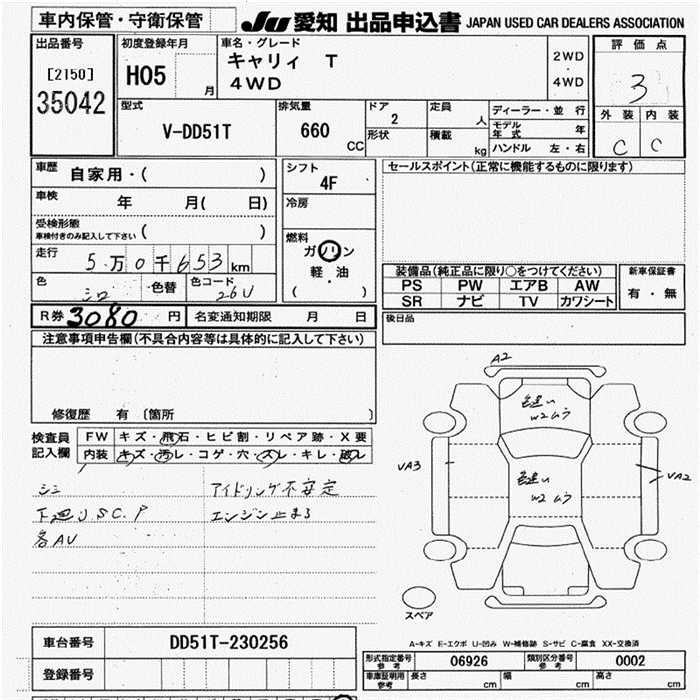 車内保管・守衛保管
JU 愛知 出品申込書 JAPAN USED CAR DEALERS ASSOCIATION
出品番号
[2150]
35042
初度登録年月
H05
月
車名・グレード
キャリィ T
4WD
2WD
・
4WD
評価点
3
外装 内装
C C
型式
V-DD51T
排気量
660
CC
ドア
2
形状
定員
人
積載
kg
ディーラー・並行
モデル
年式
年
ハンドル 左・右
車歴
自家用・( )
車検
年 月( 日)
受検形態
車検付きのみ記入して下さい ( )
走行
5万0千653km
色
シロ
色替
色コード
26U
シフト
4F
冷房
燃料
ガソリン
軽・油
( )
セールスポイント(正常に機能するものに限ります)
装備品(純正品に限り○をつけてください)
PS PW エアB AW
SR ナビ TV カワシート
新車保証書
有・無
後日品
R券 3080 円
名変通知期限 月 日
注意事項申告欄(不具合内容等は具体的に記入して下さい)
修復歴 有 〔箇所 〕
検査員
記入欄
FW キズ・飛石・ヒビ割・リペア跡・X要
内装 キズ・汚レ・コゲ・穴・スレ・キレ・破レ
シミ
下廻りS.C.P
各AU
アイドリング不安定
エンジン止まる
A2
色違い
W2ムラ
色違い
W2ムラ
UA3
UA2
スペア
A-キズ E-エクボ U-凹み W-補修跡 S-サビ C-腐食 XX-交換済
車台番号
DD51T-230256
登録番号
形式指定番号
参考
06926
類別区分番号
参考
0002
車庫証明用
参考
長さ
cm
幅
cm
高さ
cm